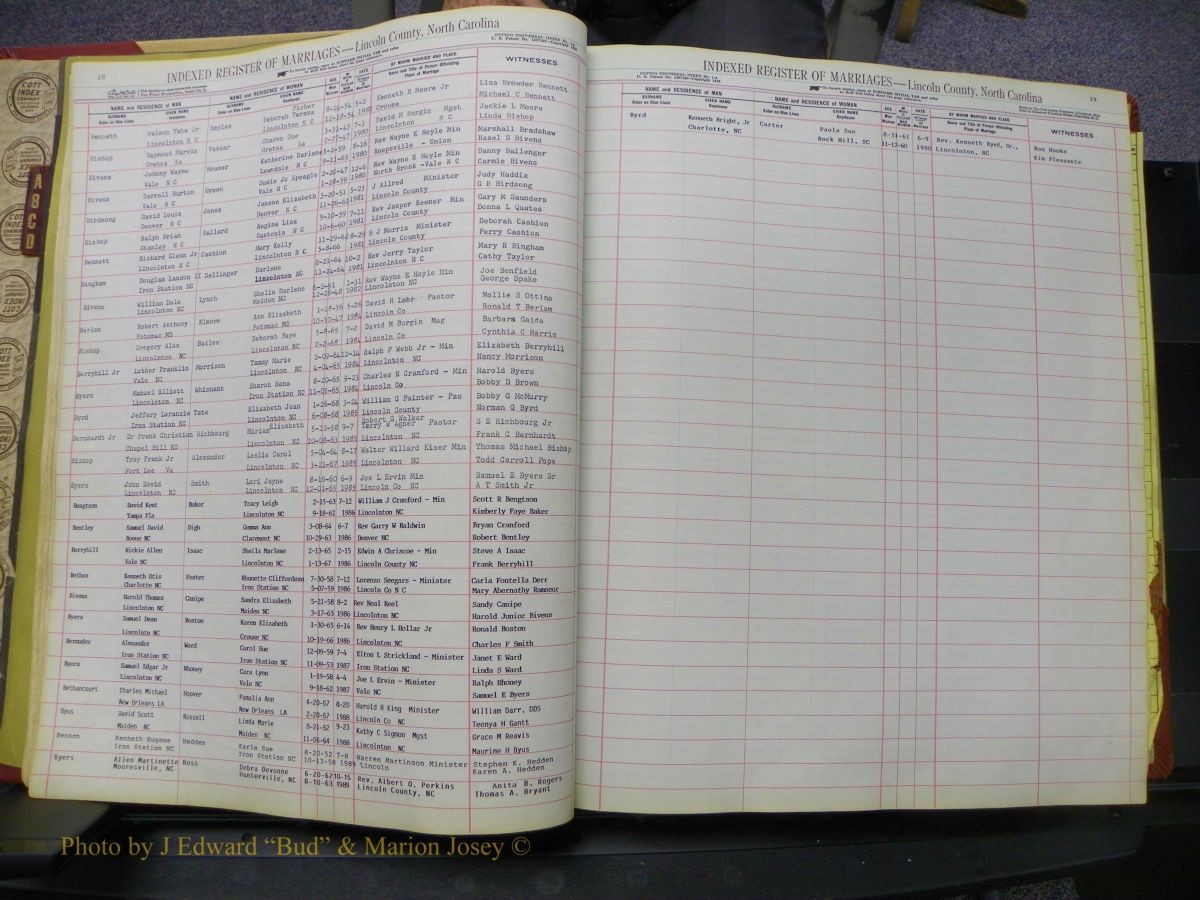 19
INDEXED REGISTER OF MARRIAGES—Lincoln County, North Carolina
COTTCO UNIVERSAL INDEX
WITNESSES
NAME and RESIDENCE of MAN
NAME and RESIDENCE of WOMAN
BY WHOM MARRIED AND PLACE
Name and Title of Person Officiating
Place of Marriage
SURNAME GIVEN NAME
Enter on Blue Lines Residence
Bennett Nelson Tate Jr Boyles Fisher Deborah Teresa 8-24-54 5-2 Kenneth H Moore Jr Lisa Browder Bennett
Lincolnton N C Lincolnton N C 12-18-54 1980 Crouse Michael C Bennett
Bishop Raymond Marvin Vassar Sharon Sue 3-31-43 7-3 David M Burgin Mgst Jackie L Moore
Gretna La Gretna La 2-27-47 1980 Lincolnton N C Linda Bishop
Bivens Johnny Wayne Houser Katherine Darlene 5-2-59 8-16 Rev Wayne E Hoyle Min Marshall Bradshaw
Vale N C Lawndale N C 9-11-63 1980 Reepsville - Union Hazel S Bivens
Bivens Darrell Burton Green Susie Jo Speagle 2-20-47 12-6 Rev Wayne E Hoyle Min Danny Ballenger
Vale N C Vale N C 1-28-59 1980 North Brook -Vale N C Carmie Bivens
Birdsong David Louis Jones Janene Elizabeth 3-20-51 5-23 J Allred Minister Judy Haddix
Denver N C Denver N C 11-26-61 1981 Lincoln County G B Birdsong
Bishop Ralph Brian Ballard Regina Lisa 9-10-59 7-11 Rev Jasper Keener Min Gary M Saunders
Stanley N C Gastonia N C 10-6-60 1981 Lincoln County Donna L Quates
Bennett Richard Glenn Jr Cashion Mary Kelly 11-29-62 8-29 B J Morris Minister Deborah Cashion
Lincolnton N C Lincolnton N C 5-8-66 1981 Lincoln County Perry Cashion
Bingham Douglas Landon II Dellinger Darlene 2-21-64 10-2 Rev Jerry Taylor Mary R Bingham
Iron Station NC Lincolnton NC 11-24-64 1981 Lincolnton N C Cathy Taylor
Bivens William Dale Lynch Shelia Darlene 6-2-51 1-31 Rev Wayne E Hoyle Min Joe Benfield
Lincolnton NC Maiden NC 12-28-48 1982 Lincolnton NC George Spake
Berlan Robert Anthony Elmore Ann Elizabeth 1-18-36 5-26 David H Lohr Pastor Mollie S Ottino
Potomac MD Potomac MD 10-30-47 1984 Lincoln Co Ronald T Berlam
Bishop Gregory Alan Bailes Deborah Faye 5-8-65 7-2 David M Burgin Mag Barbara Gaida
Lincolnton NC Lincolnton NC 7-2-68 1984 Lincoln Co Cynthia C Harris
Berryhill Jr Luther Franklin Morrison Tammy Marie 2-09-64 12-14 Ralph F Webb Jr - Min Elizabeth Berryhill
Vale NC Lincolnton NC 4-04-65 1984 Lincolnton NC Nancy Morrison
Byers Manuel Elliott Whisnant Sharon Rena 8-20-65 9-23 Charles N Cranford - Min Harold Byers
Lincolnton NC Iron Station NC 11-05-65 1984 Lincoln Co Bobby D Brown
Byrd Jeffery Loranzie Tate Elizabeth Jean 1-26-68 3-24 William G Painter - Pas Bobby G McMurry
Iron Station NC Lincolnton NC 6-08-68 1985 Lincoln County Norman G Byrd
Robert G Walker
Bernhardt Jr Dr Frank Christian Richbourg Miriam Elizabeth 5-12-58 9-7 Terry W Agner Pastor S E Richbourg Jr
Chapel Hill NC Lincolnton NC 10-08-63 1985 Lincolnton NC Frank C Bernhardt
Bishop Troy Frank Jr Alexander Leslie Carol 5-04-64 8-17 Walter Willard Kiser Min Thomas Michael Bishop
Fort Lee Va Lincolnton NC 3-21-67 1985 Lincolnton NC Todd Carroll Pope
Byers John David Smith Lori Jayne 8-16-60 6-9 Joe L Ervin Min Samuel E Byers Sr
Lincolnton NC Lincolnton NC 12-01-65 1985 Lincoln Co NC A T Smith Jr
Bengtson David Kent Baker Tracy Leigh 2-15-63 7-12 William J Cranford - Min Scott R Bengtson
Tampa Fla Lincolnton NC 9-18-62 1986 Lincolnton NC Kimberly Faye Baker
Bentley Samuel David Digh Gemma Ann 3-08-64 6-7 Rev Garry W Baldwin Bryan Cranford
Boone NC Claremont NC 10-29-63 1986 Denver NC Robert Bentley
Berryhill Rickie Allen Isaac Sheila Marlene 2-13-65 2-15 Edwin A Chriscoe - Min Steve A Isaac
Vale NC Lincolnton NC 1-13-67 1986 Lincoln County NC Frank Berryhill
Bethea Kenneth Otis Foster Rhunette Cliffordean 7-30-58 7-12 Lorenzo Seegars - Minister Carla Fontella Derr
Charlotte NC Iron Station NC 5-07-59 1986 Lincoln Co N C Mary Abernathy Ramseur
Bivens Harold Thomas Canipe Sandra Elizabeth 5-21-58 8-2 Rev Neal Reel Sandy Canipe
Lincolnton NC Maiden NC 3-17-63 1986 Lincolnton NC Harold Junior Bivens
Byers Samuel Dean Boston Karen Elizabeth 1-30-65 6-14 Rev Henry L Hollar Jr Ronald Boston
Lincolnton NC Crouse NC 10-19-66 1986 Lincolnton NC Charles F Smith
Bermudes Alexander Ward Carol Sue 12-09-59 7-4 Elton L Strickland - Minister Janet E Ward
Iron Station NC Iron Station NC 11-09-53 1987 Iron Station NC Linda S Ward
Byers Samuel Edgar Jr Rhoney Cara Lynn 1-19-58 4-4 Joe L Ervin - Minister Ralph Rhoney
Lincolnton NC Vale NC 9-18-62 1987 Vale NC Samuel E Byers
Bethancourt Charles Michael Hoover Pamalia Ann 4-20-57 8-20 Harold R King Minister William Darr, DDS
New Orleans LA New Orleans LA 2-20-57 1988 Lincoln Co NC Teenya H Gantt
Byus David Scott Russell Linda Marie 8-21-52 9-23 Kathy C Sigmon Mgst Grace M Reavis
Maiden NC Maiden NC 11-06-64 1988 Lincolnton NC Maurine H Byus
Benson Kenneth Eugene Hedden Karla Sue 8-20-52 7-8 Warren Martinson Minister Stephen K. Hedden
Iron Station NC Iron Station NC 10-13-58 1989 Lincoln Karen A. Hedden
Byers Allen Martinette Ross Debra Devonne 6-20-62 10-15 Rev. Albert O. Perkins Anita B. Rogers
Mooresville, NC Hunterville, NC 8-10-63 1989 Lincoln County, NC Thomas A. Bryant
INDEXED REGISTER OF MARRIAGES—Lincoln County, North Carolina
19
NAME and RESIDENCE of MAN
NAME and RESIDENCE of WOMAN
BY WHOM MARRIED AND PLACE
Name and Title of Person Officiating
Place of Marriage
WITNESSES
Byrd Kenneth Bright, Jr Carter Paula Sue 8-31-61 6-9 Rev. Kenneth Byrd, Sr., Ron Hooks
Charlotte, NC Rock Hill, SC 11-12-60 1990 Lincolnton, NC Kim Pleasants
COTT
INDEX
COMPANY
A
B
C
D
Photo by J Edward “Bud” & Marion Josey ©